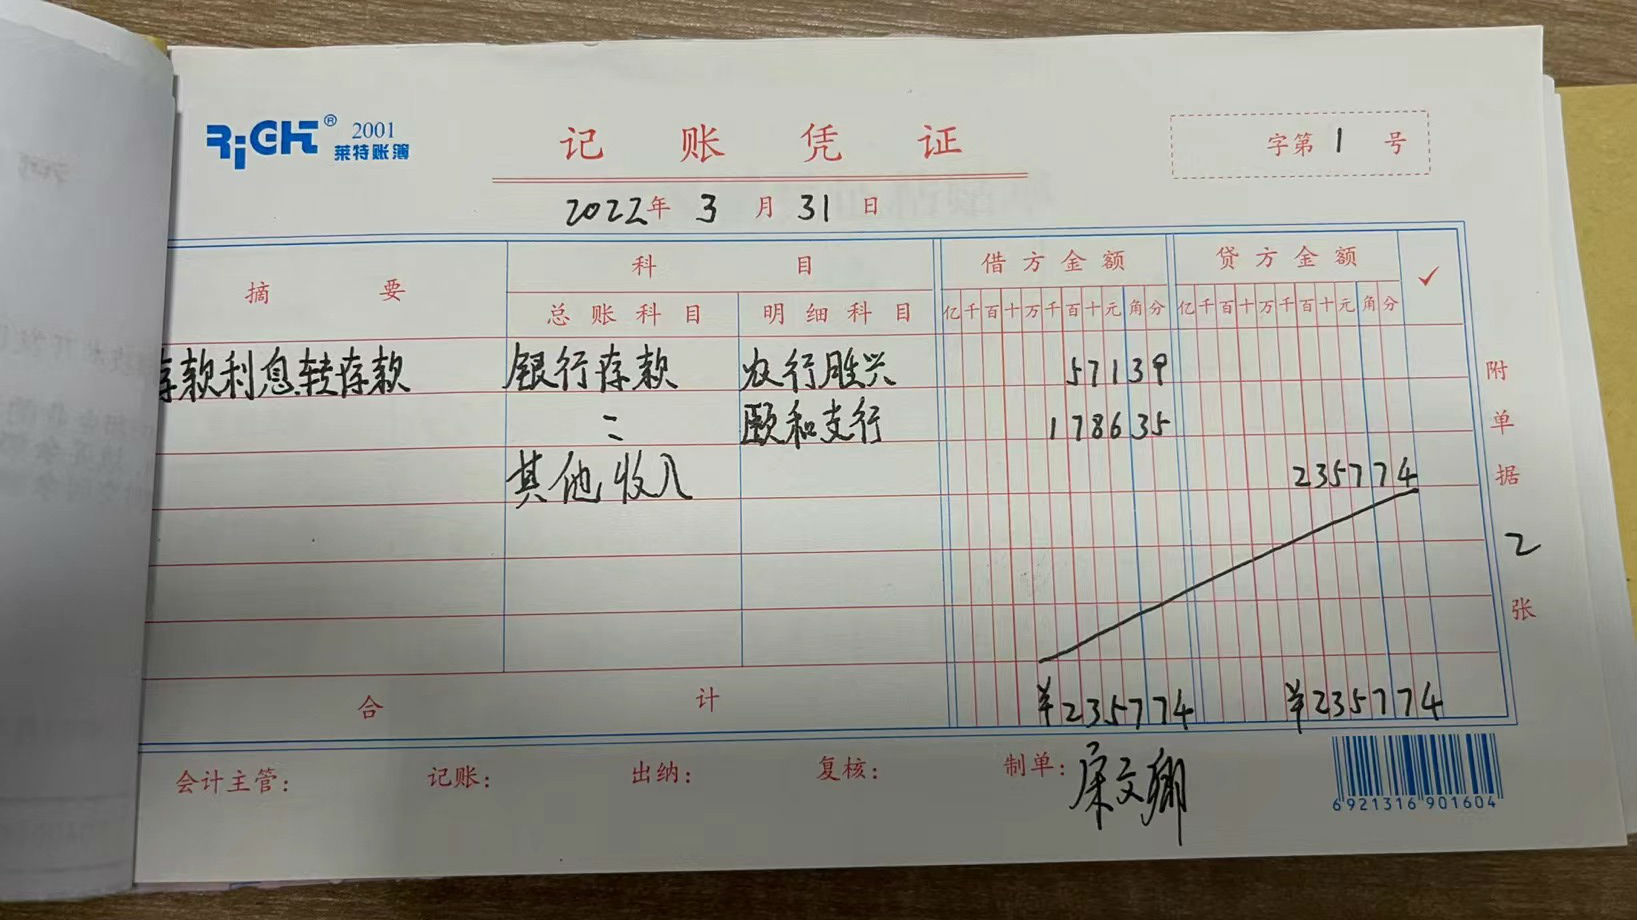 RiGHT® 2001
莱特账簿
记账凭证
字第 1 号
2022年 3 月 31 日
摘要 科目 借方金额 贷方金额 ✓
总账科目 明细科目 亿千百十万千百十元角分 亿千百十万千百十元角分
存款利息转存款 银行存款 农行胜兴 57139
〃 颐和支行 178635
其他收入 235774
附单据 2 张
合计 ¥235774 ¥235774
会计主管: 记账: 出纳: 复核: 制单:
6921316901604